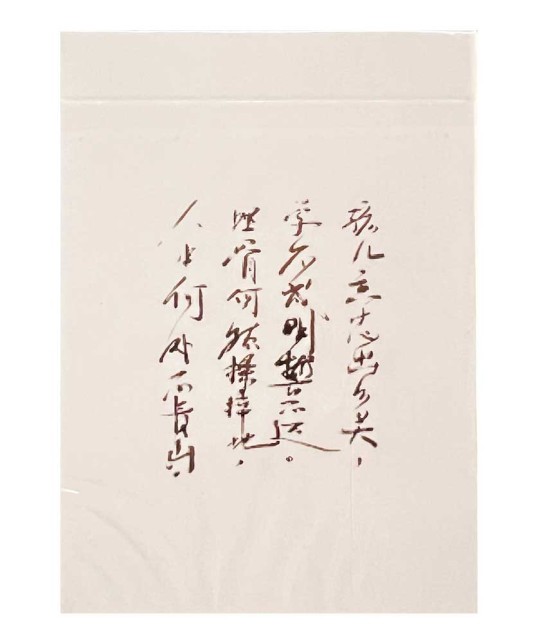 孩儿立志出乡关，
学不成名誓不还。
埋骨何须桑梓地，
人生何处不青山.